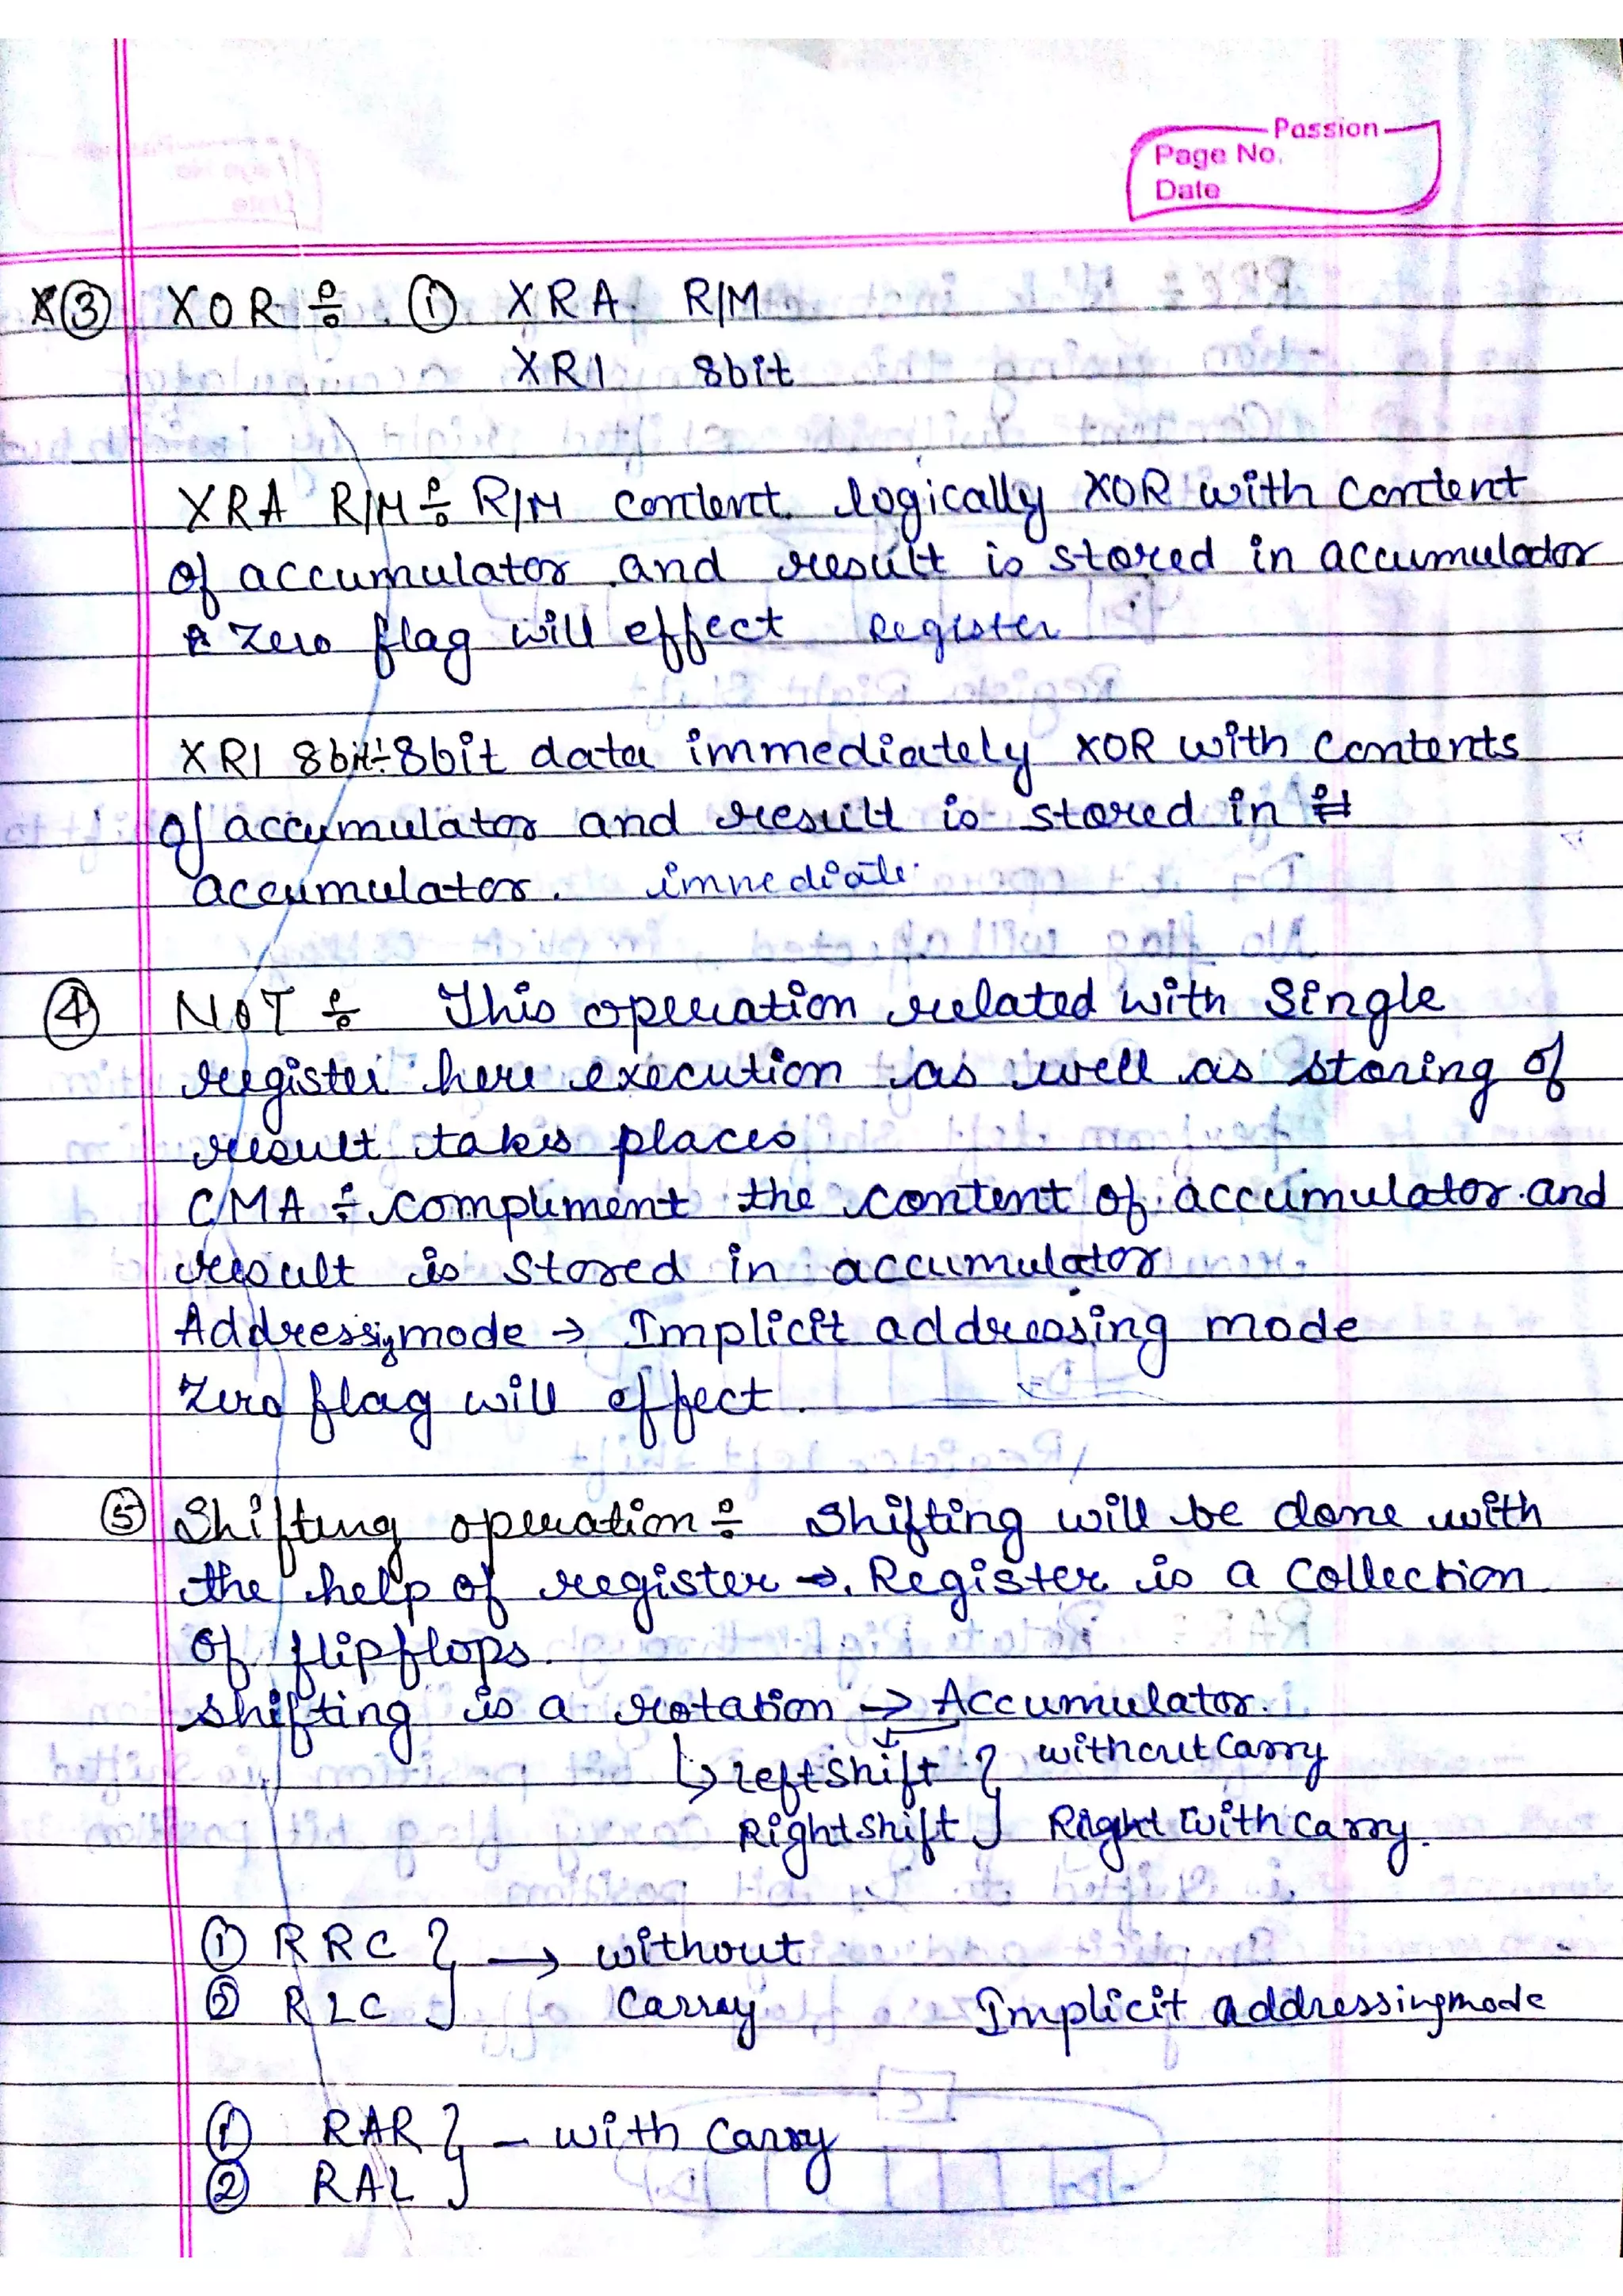 Passion
Page No.
Date
③ XOR ÷ ① XRA R/M
XRI 8bit
XRA R/M ÷ R/M content logically XOR with content
of accumulator and result is stored in accumulator
Zero flag will effect Register
XRI 8bit ÷ 8bit data immediately XOR with contents
of accumulator and result is stored in
accumulator. immediate
④ NOT ÷ This operation related with Single
register here execution as well as storing of
result takes places
CMA ÷ compliment the content of accumulator and
result is stored in accumulator
Addressig mode → Implicit addressing mode
Zero flag will effect.
⑤ Shifting operation ÷ Shifting will be done with
the help of register → Register is a collection
of flipflops.
Shifting is a rotation → Accumulator.
↳ Leftshift } without Carry
Rightshift } Right with Carry.
① RRC } → without
② RLC } Carry Implicit addressingmode
① RAR } - with Carry
② RAL }